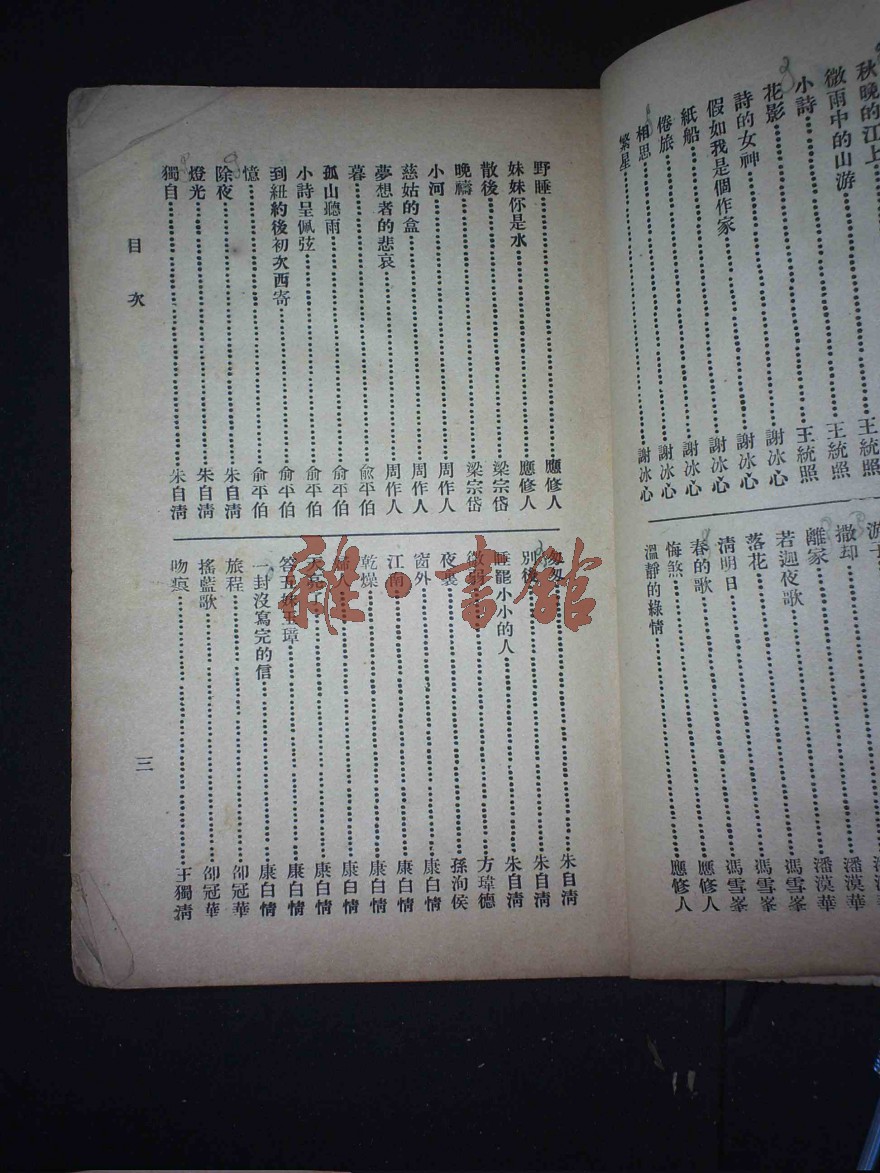 秋晚的江上
微雨中的山游……王統照
小詩……王統照
花影……謝冰心
詩的女神……謝冰心
假如我是個作家……謝冰心
紙船……謝冰心
倦旅……謝冰心
相思……謝冰心
繁星
撒却
離家
若迦夜歌……馮雪峯
落花……馮雪峯
清明日……馮雪峯
春的歌……應修人
悔煞……應修人
溫靜的綠情
潘漠華
潘漠華
王統照
野睡……應修人
妹妹你是水……應修人
散後……梁宗岱
晚禱……梁宗岱
小河……周作人
慈姑的盒……周作人
夢想者的悲哀……周作人
暮……俞平伯
孤山聽雨……俞平伯
小詩呈佩弦……俞平伯
到紐約後初次西寄……俞平伯
憶……俞平伯
除夜……朱自清
燈光……朱自清
獨自……朱自清
匆匆……朱自清
別後……朱自清
睡罷小小的人……朱自清
微弱……方瑋德
夜裏……孫洵侯
窗外……康白情
江南……康白情
乾燥……康白情
婦人……康白情
天亮了……康白情
答五妹玉璋……康白情
一封沒寫完的信……康白情
旅程……邵冠華
搖藍歌……邵冠華
吻痕……王獨清
目次
三
雜·書館